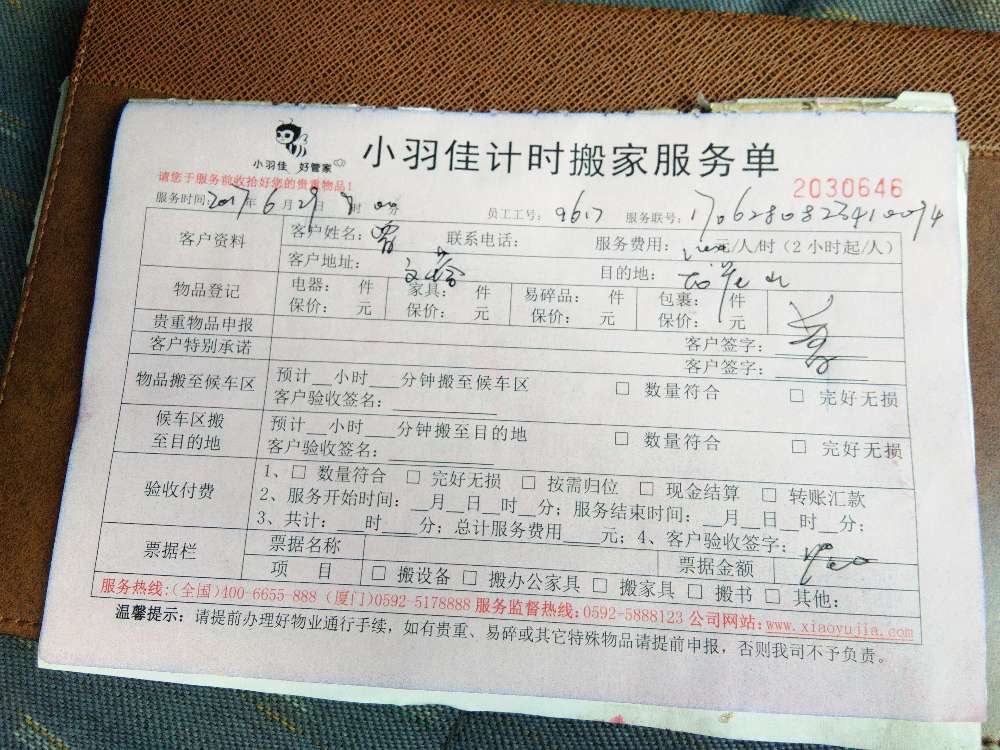 小羽佳 好管家
小羽佳计时搬家服务单
请您于服务前收拾好您的贵重物品!
2030646
服务时间:2017年6月29日 时 分 员工工号:9617 服务联号:
客户资料 客户姓名: 联系电话: 服务费用: 元/人/时(2小时起/人)
客户地址: 目的地:
物品登记 电器: 件 家具: 件 易碎品: 件 包裹: 件
保价: 元 保价: 元 保价: 元 保价: 元
贵重物品申报 客户签字:
客户特别承诺 客户签字:
物品搬至候车区 预计__小时___分钟搬至候车区 □ 数量符合 □ 完好无损
客户验收签名:
候车区搬至目的地 预计__小时___分钟搬至目的地 □ 数量符合 □ 完好无损
客户验收签名:
验收付费 1、□ 数量符合 □ 完好无损 □ 按需归位 □ 现金结算 □ 转账汇款
2、服务开始时间:__月__日__时__分;服务结束时间:__月__日__时__分;
3、共计:___时___分;总计服务费用____元;4、客户验收签字:
票据栏 票据名称 票据金额
项 目 □ 搬设备 □ 搬办公家具 □ 搬家具 □ 搬书 □ 其他:
服务热线:(全国)400-6655-888 (厦门)0592-5178888 服务监督热线:0592-5888123 公司网站:www.xiaoyujia.com
温馨提示:请提前办理好物业通行手续,如有贵重、易碎或其它特殊物品请提前申报,否则我司不予负责。